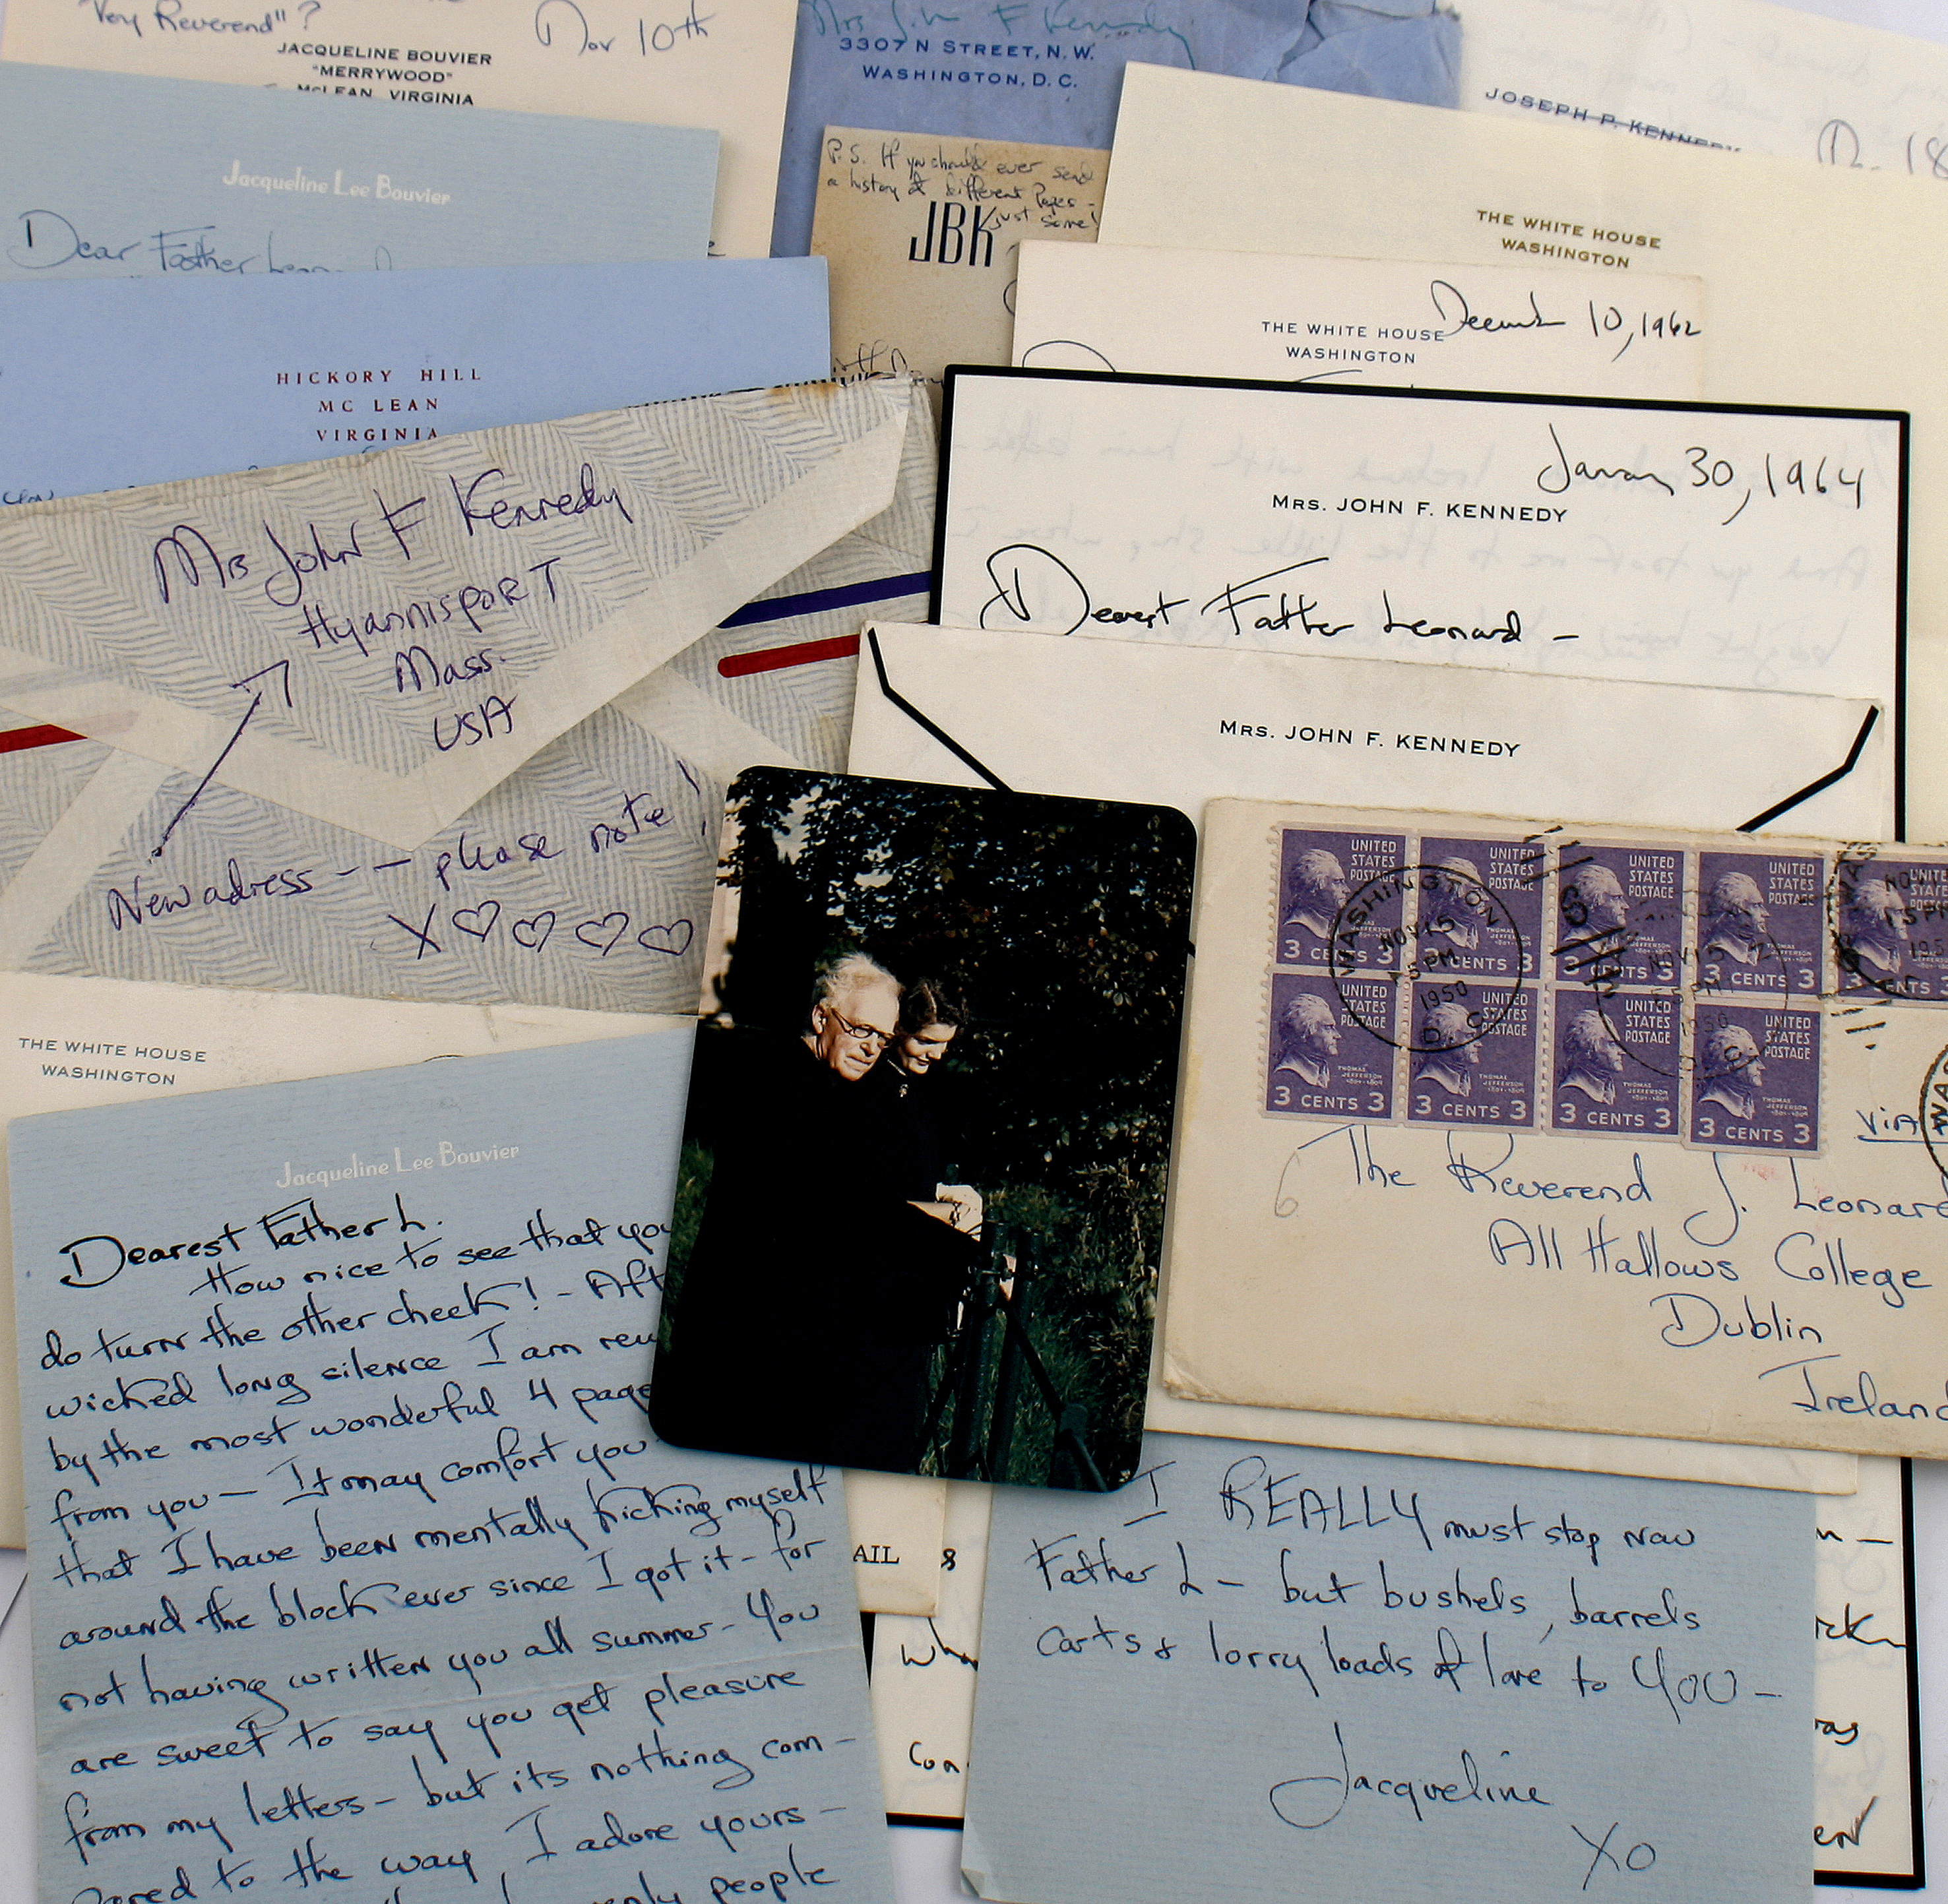 "Very Reverend"?
Nov 10th
JACQUELINE BOUVIER
"MERRYWOOD"
MCLEAN, VIRGINIA
Mrs John F Kennedy
3307 N STREET, N.W.
WASHINGTON, D.C.
JOSEPH P. KENNEDY
Jacqueline Lee Bouvier
Dear Father Leonard
P.S. If you should ever send
a history of different Popes -
just some!
JBK
THE WHITE HOUSE
WASHINGTON
THE WHITE HOUSE
WASHINGTON
December 10, 1962
HICKORY HILL
MC LEAN
VIRGINIA
January 30, 1964
MRS. JOHN F. KENNEDY
Dearest Father Leonard -
Mrs John F Kennedy
HyannisporT
Mass.
USA
New adress -- please note!
X♡♡♡♡
MRS. JOHN F. KENNEDY
UNITED STATES POSTAGE
THOMAS JEFFERSON
3 CENTS 3
WASHINGTON
NOV 15
5 PM
1950
D.C.
VIA
The Reverend J. Leonard
All Hallows College
Dublin
Ireland
6
THE WHITE HOUSE
WASHINGTON
Jacqueline Lee Bouvier
Dearest Father L.
How nice to see that you
do turn the other cheek! - Aft
wicked long silence I am rew
by the most wonderful 4 page
from you - It may comfort you
that I have been mentally kicking myself
around the block ever since I got it - for
not having written you all summer - You
are sweet to say you get pleasure
from my letters - but its nothing com-
pared to the way I adore yours -
only people
AIL
I REALLY must stop now
Father L - but bushels, barrels
carts & lorry loads of love to YOU -
Jacqueline
XO